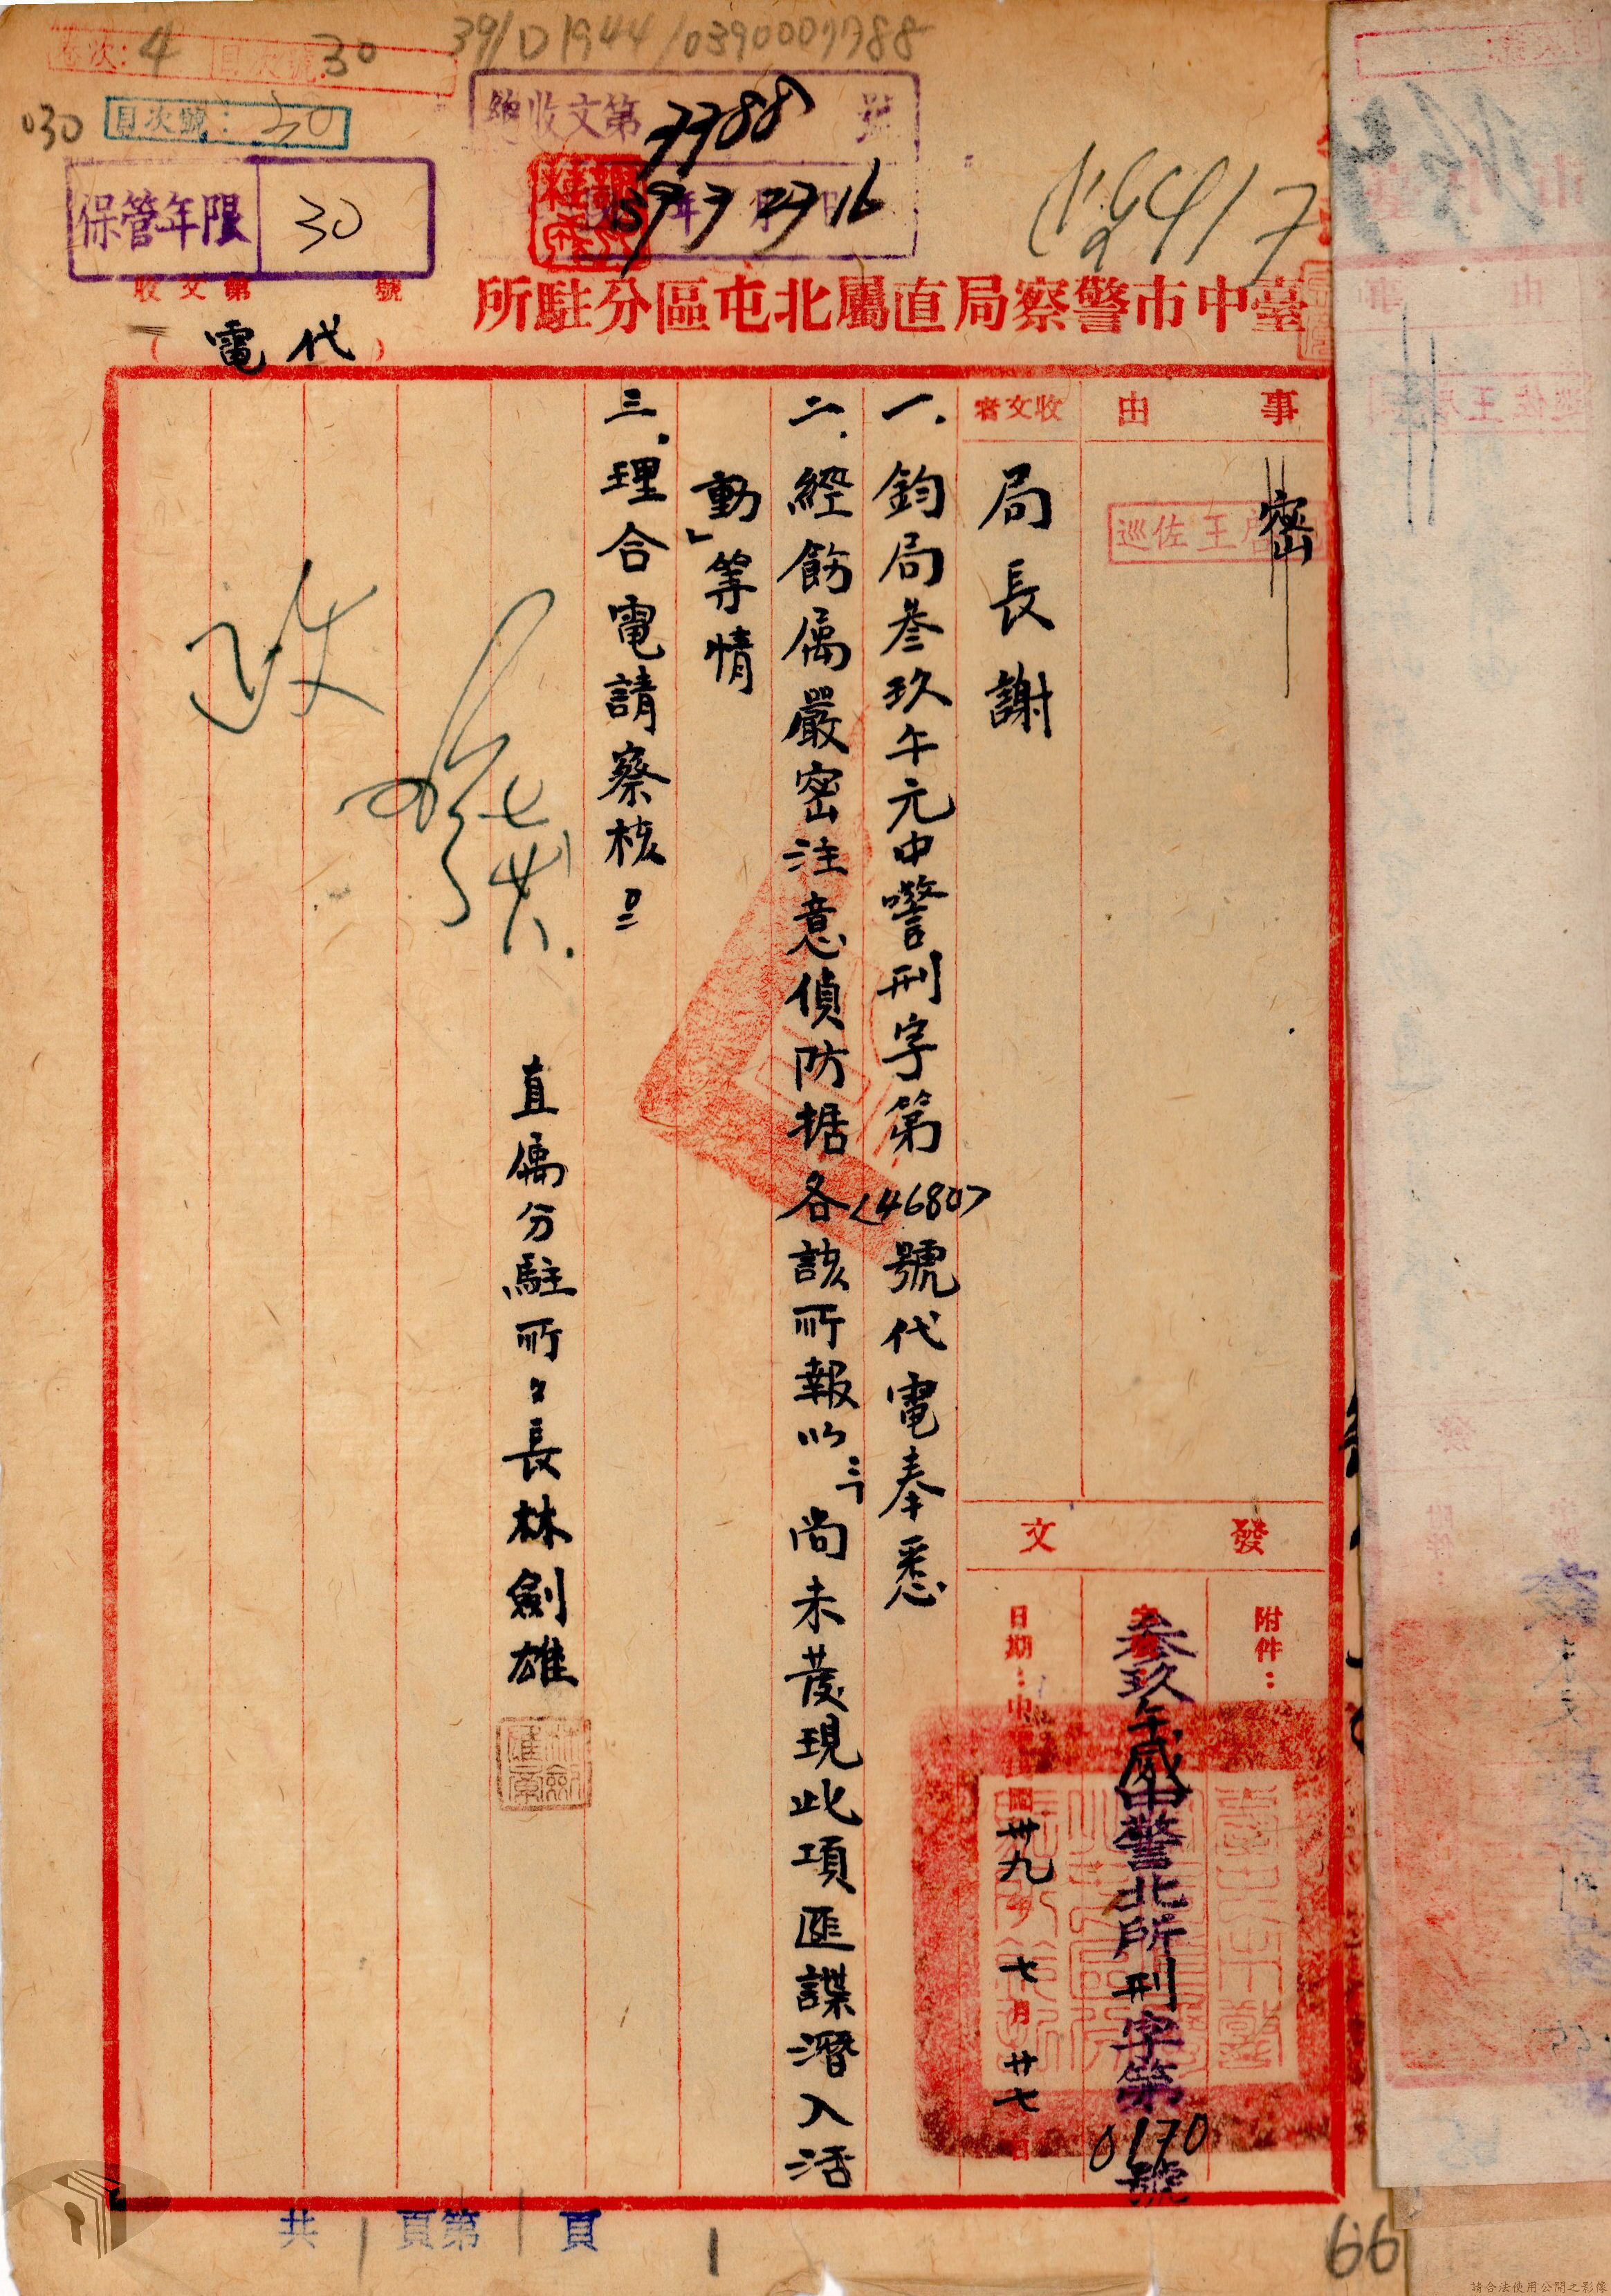 卷次：4 目次號：30
39/D1944/0390007788
030
目次號：30
總收文第7788號
39年7月27日16
保管年限 30
收文第 號
臺中市警察局直屬北屯區分駐所
（代電）
事由
密
巡佐王
收文者
局長謝
發文
附件：
字號：叁玖午威中警北所刑字第0170號
日期：中華民國卅九年七月廿七日
一、鈞局叁玖午元中警刑字第<4680>號代電奉悉
二、經飭属嚴密注意偵防据各該所報以：「尚未發現此項匪諜潛入活
動」等情
三、理合電請察核
直属分駐所々長林劍雄
共1頁第1頁
1
66
請合法使用公開之影像